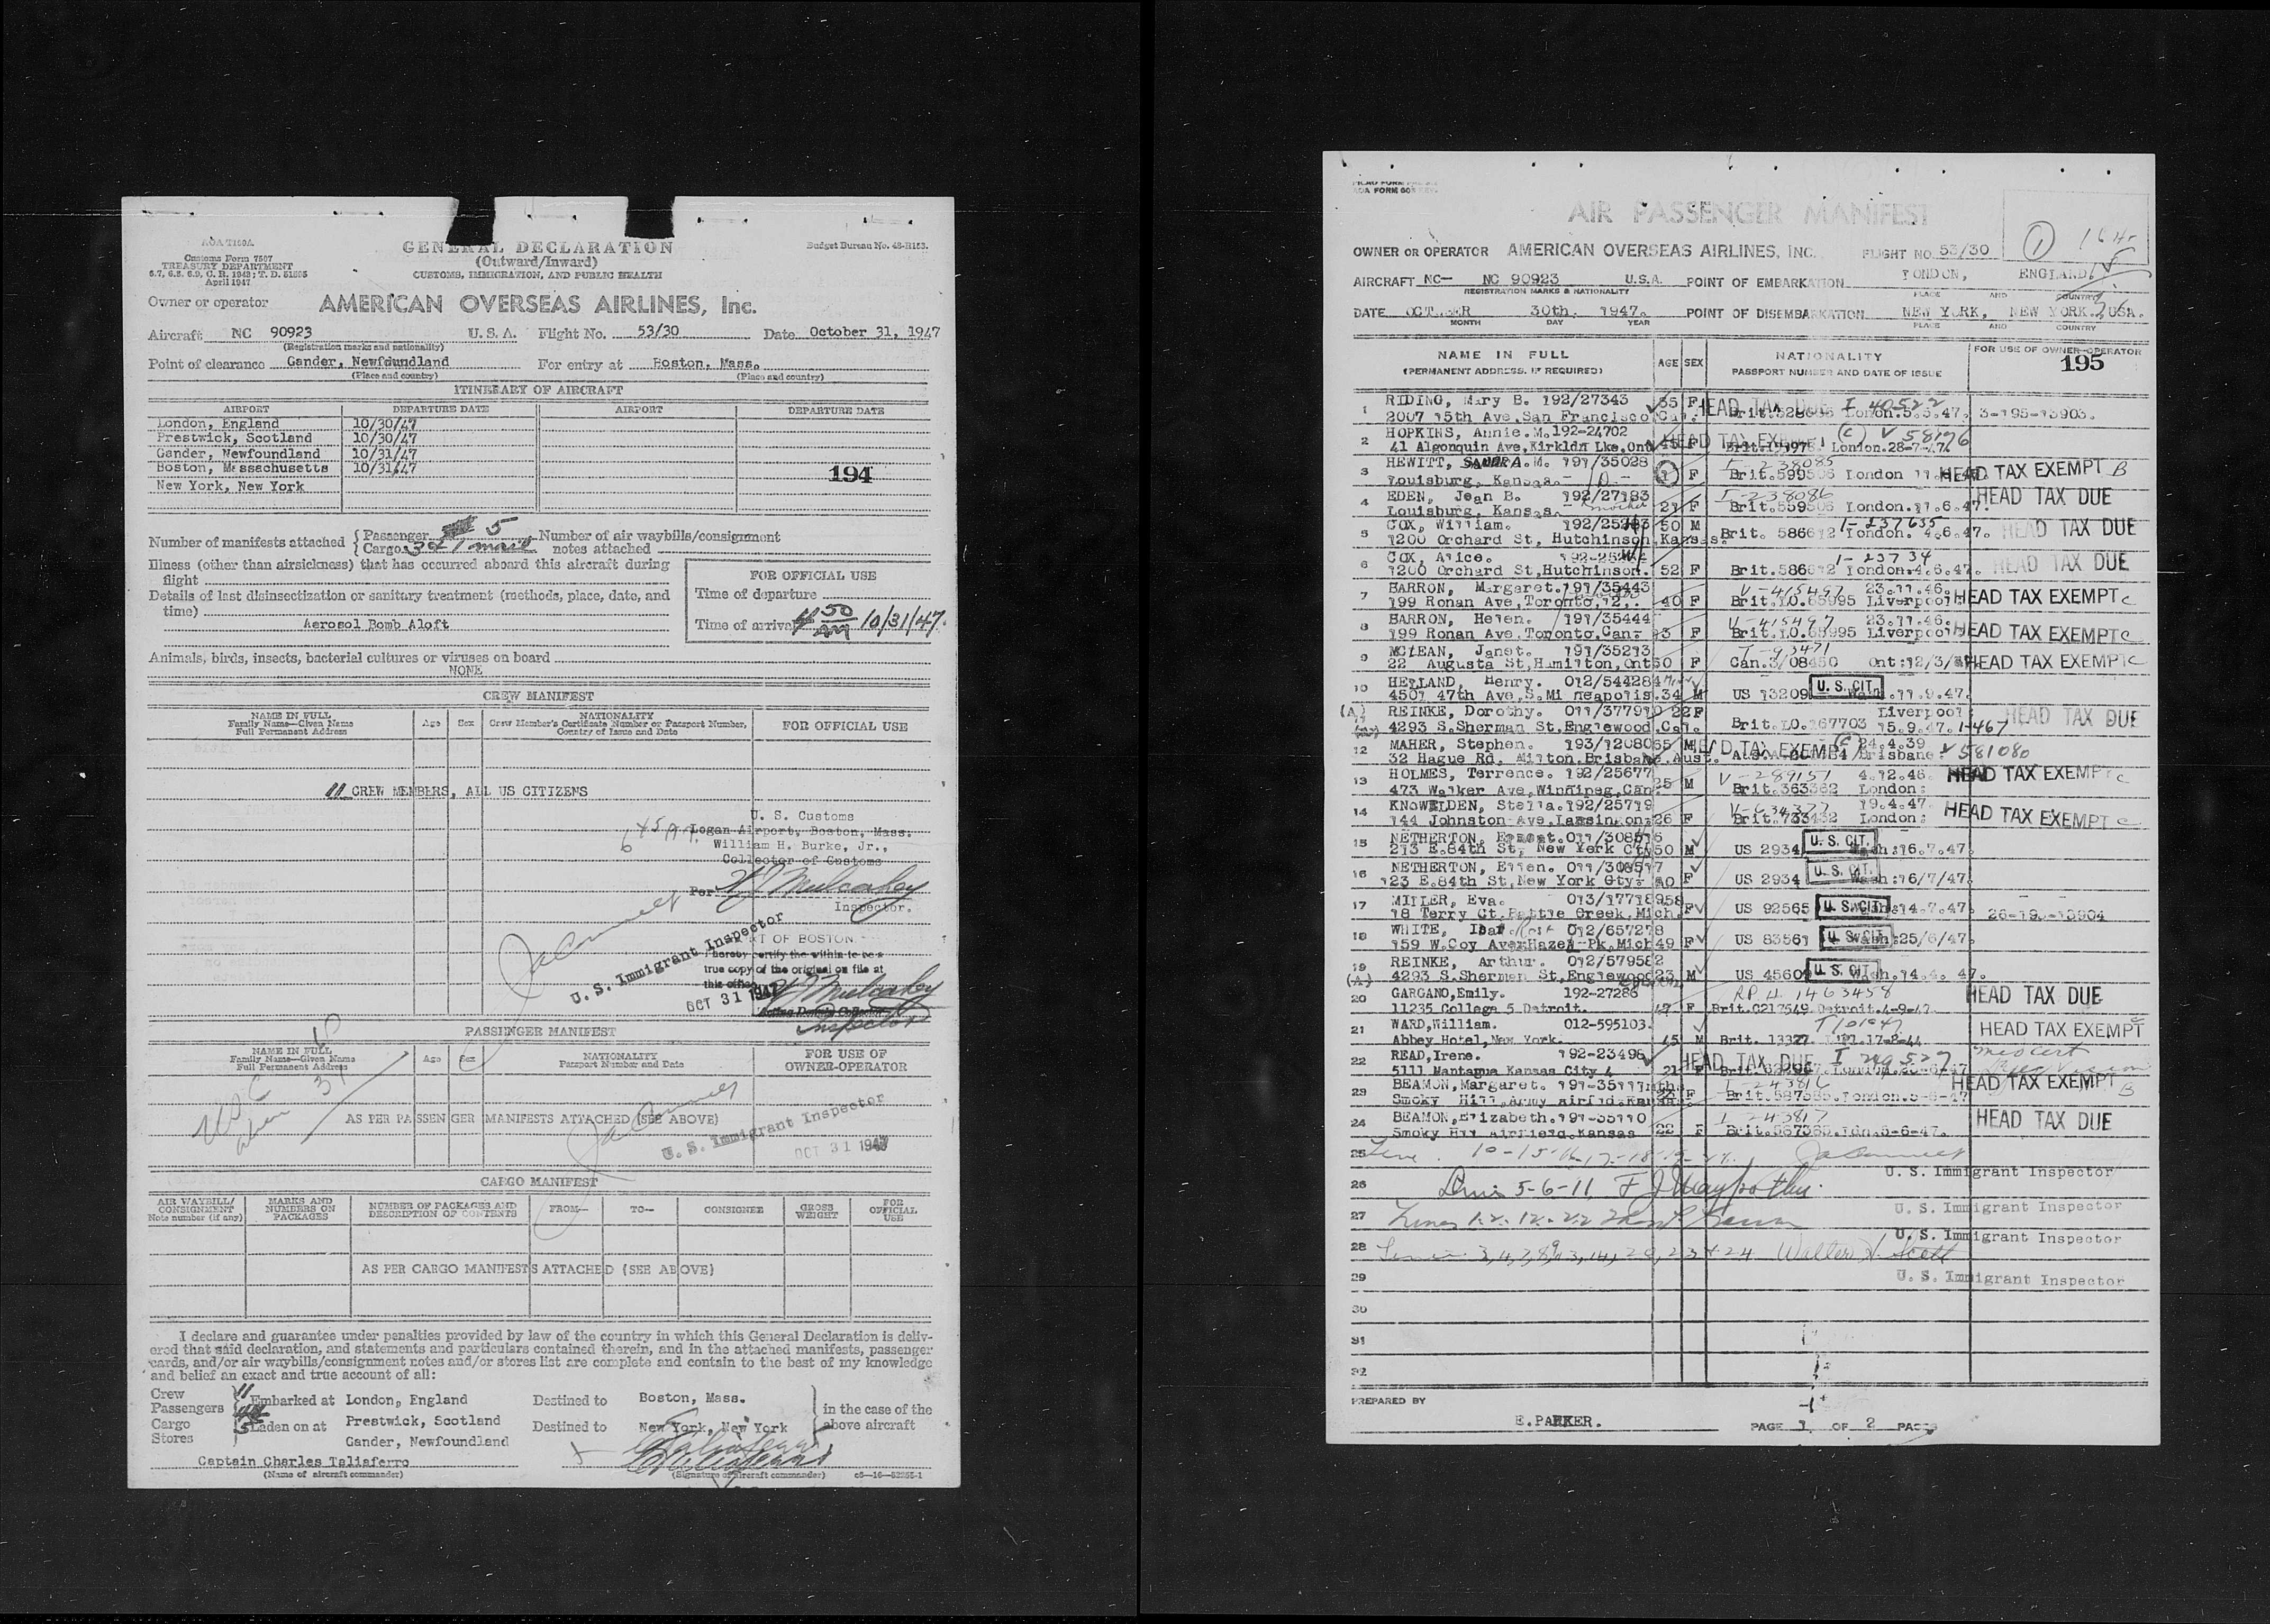 AOA T160A
Customs Form 7507
TREASURY DEPARTMENT
6.7, 6.8, 6.9, C. R. 1943; T. D. 51595
April 1947
GENERAL DECLARATION
(Outward/Inward)
CUSTOMS, IMMIGRATION, AND PUBLIC HEALTH
Budget Bureau No. 48-R153.
Owner or operator AMERICAN OVERSEAS AIRLINES, Inc.
Aircraft NC 90923 U. S. A. Flight No. 53/30 Date October 31, 1947
(Registration marks and nationality)
Point of clearance Gander, Newfoundland For entry at Boston, Mass.
(Place and country) (Place and country)
ITINERARY OF AIRCRAFT
AIRPORT DEPARTURE DATE AIRPORT DEPARTURE DATE
London, England 10/30/47
Prestwick, Scotland 10/30/47
Gander, Newfoundland 10/31/47
Boston, Massachusetts 10/31/47
194
New York, New York
Number of manifests attached Passenger 5 Number of air waybills/consignment
Cargo 3 & 1 mail notes attached
Illness (other than airsickness) that has occurred aboard this aircraft during
flight
FOR OFFICIAL USE
Details of last disinsectization or sanitary treatment (methods, place, date, and
time)
Time of departure
Aerosol Bomb Aloft
Time of arrival 4 50 AM 10/31/47.
Animals, birds, insects, bacterial cultures or viruses on board
NONE
CREW MANIFEST
NAME IN FULL
Family Name—Given Name
Full Permanent Address
Age Sex
NATIONALITY
Crew Member's Certificate Number or Passport Number,
Country of Issue and Date
FOR OFFICIAL USE
11 CREW MEMBERS, ALL US CITIZENS
U. S. Customs
Logan Airport, Boston, Mass.
William H. Burke, Jr.,
Collector of Customs
Per WJ Mulcahey
Inspector.
U. S. Immigrant Inspector
PORT OF BOSTON
I hereby certify the within to be a
true copy of the original on file at
this office
OCT 31 1947
WJ Mulcahey
Acting Deputy Collector
Inspector
PASSENGER MANIFEST
NAME IN FULL
Family Name—Given Name
Full Permanent Address
Age Sex
NATIONALITY
Passport Number and Date
FOR USE OF
OWNER-OPERATOR
AS PER PASSENGER MANIFESTS ATTACHED (SEE ABOVE)
U. S. Immigrant Inspector
OCT 31 1947
CARGO MANIFEST
AIR WAYBILL/
CONSIGNMENT
Note number (if any)
MARKS AND
NUMBERS ON
PACKAGES
NUMBER OF PACKAGES AND
DESCRIPTION OF CONTENTS
FROM— TO— CONSIGNEE
GROSS
WEIGHT
FOR
OFFICIAL
USE
AS PER CARGO MANIFESTS ATTACHED (SEE ABOVE)
I declare and guarantee under penalties provided by law of the country in which this General Declaration is deliv-
ered that said declaration, and statements and particulars contained therein, and in the attached manifests, passenger
cards, and/or air waybills/consignment notes and/or stores list are complete and contain to the best of my knowledge
and belief an exact and true account of all:
Crew 11 Embarked at London, England Destined to Boston, Mass.
Passengers in the case of the
Cargo Laden on at Prestwick, Scotland Destined to New York, New York above aircraft
Stores Gander, Newfoundland
Captain Charles Taliaferro
(Name of aircraft commander) (Signature of aircraft commander) c6—16—52255-1
AOA FORM
AIR PASSENGER MANIFEST
1
OWNER OR OPERATOR AMERICAN OVERSEAS AIRLINES, INC. FLIGHT NO. 53/30
AIRCRAFT NC— NC 90923 U.S.A. POINT OF EMBARKATION LONDON, ENGLAND
REGISTRATION MARKS & NATIONALITY PLACE AND COUNTRY
DATE OCTOBER 30th. 1947. POINT OF DISEMBARKATION NEW YORK, NEW YORK. USA.
MONTH DAY YEAR PLACE AND COUNTRY
NAME IN FULL
(PERMANENT ADDRESS, IF REQUIRED)
AGE SEX
NATIONALITY
PASSPORT NUMBER AND DATE OF ISSUE
FOR USE OF OWNER-OPERATOR
195
1 RIDING, Mary B. 192/27343 35 F HEAD TAX DUE
2007 15th Ave. San Francisco Cal. London.5.5.47. 3-195-13903.
2 HOPKINS, Annie.M.192-24702 HEAD TAX EXEMPT (C) V 58196
41 Algonquin Ave,Kirkldn Lke,Ont. F London.28-7-47.
3 HEWITT, SANDRA.M. 191/35028 1 F I-238085 HEAD TAX EXEMPT B
Louisburg, Kansas. Brit.599506 London
4 EDEN, Jean B. 192/27183 21 F I-238086 HEAD TAX DUE
Louisburg, Kansas. Brit.559506 London.11.6.47.
5 COX, William. 50 M 1-237635 HEAD TAX DUE
1200 Orchard St, Hutchinson,Kansas. Brit. 586612 London. 4.6.47.
6 COX, Alice. 52 F HEAD TAX DUE
1200 Orchard St,Hutchinson. Brit.586612 London.4.6.47.
7 BARRON, Margaret.191/35443 40 F V-415497 23.11.46. HEAD TAX EXEMPT C
199 Ronan Ave,Toronto,12. Brit.LO.65995 Liverpool
8 BARRON, Helen. 191/35444 3 F V-415497 23.11.46. HEAD TAX EXEMPT C
199 Ronan Ave.Toronto.Can. Brit.LO.65995 Liverpool
9 MCLEAN, Janet. 191/35213 50 F T-93471 HEAD TAX EXEMPT C
22 Augusta St,Hamilton,Ont Can.3/08450 Ont:12/3/
10 HELLAND, Henry. 012/544284 34 M U. S. CIT.
4501 47th Ave.S.Minneapolis. US 13209 Wash.11.9.47.
(A) REINKE, Dorothy. 011/377910 22 F Liverpool: HEAD TAX DUE
4293 S.Sherman St.Englewood.Cal. Brit.LO.167703 15.9.47. 1-467
12 MAHER, Stephen. 193/1208065 M HEAD TAX EXEMPT (C) 24.4.39
32 Hague Rd, Milton.Brisbane.Aust. Brisbane V 581080
13 HOLMES, Terrence. 192/25677 25 M V-289151 4.12.46. HEAD TAX EXEMPT C
473 Walker Ave,Winnipeg,Can Brit.363362 London:
14 KNOWELDEN, Stella.192/25719 26 F V-634377 19.4.47. HEAD TAX EXEMPT C
144 Johnston Ave,Lansing,on: Brit.733432 London:
15 NETHERTON, Ernest.011/308516 50 M U. S. CIT.
213 E.84th St, New York Cty US 2934 Wash:16.7.47.
16 NETHERTON, Ellen. 011/308517 F U. S. CIT.
123 E.84th St,New York Cty. US 2934 Wash:16/7/47.
17 MILLER, Eva. 013/177189 58 F U. S. CIT.
18 Terry Ct.Battle Creek,Mich. US 92565 14.7.47. 26-19.-13904
18 WHITE, Ida 012/657278 49 F U. S. CIT.
159 W.Coy Ave,Hazel Pk,Mich US 83561 Wash:25/6/47.
19 REINKE, Arthur. 012/579582 23 M U. S. CIT.
(A) 4293 S.Sherman St.Englewood US 45609 Wash.14.4. 47.
20 GARGANO,Emily. 192-27286 47 F RP # 1463458 HEAD TAX DUE
11235 College 5.Detroit. Brit.C217549.Detroit.4-9-47.
21 WARD,William. 012-595103. 45 M HEAD TAX EXEMPT
Abbey Hotel,New York. Brit. 13327
22 READ,Irene. 192-23496 21 F HEAD TAX DUE
5111 Mantagua Kansas City 4 Med cert
23 BEAMON,Margaret. 191-35111 mths. F I-243816 HEAD TAX EXEMPT B
Smoky Hill,Army Airfld.Kansas Brit.587585.London.5-6-47
24 BEAMON,Elizabeth.191-35110 22 F I-24381? HEAD TAX DUE
Smoky Hill Airfield.Kansas Ldn.5-6-47.
25 Line. 10-15-16-17-18-19
U. S. Immigrant Inspector
26 Lines 5-6-11
U. S. Immigrant Inspector
27 Lines 1.2.12.22
U. S. Immigrant Inspector
28 Walter H. Scott
U. S. Immigrant Inspector
29
30
31
32
PREPARED BY
E.PARKER. PAGE 1 OF 2 PAGES